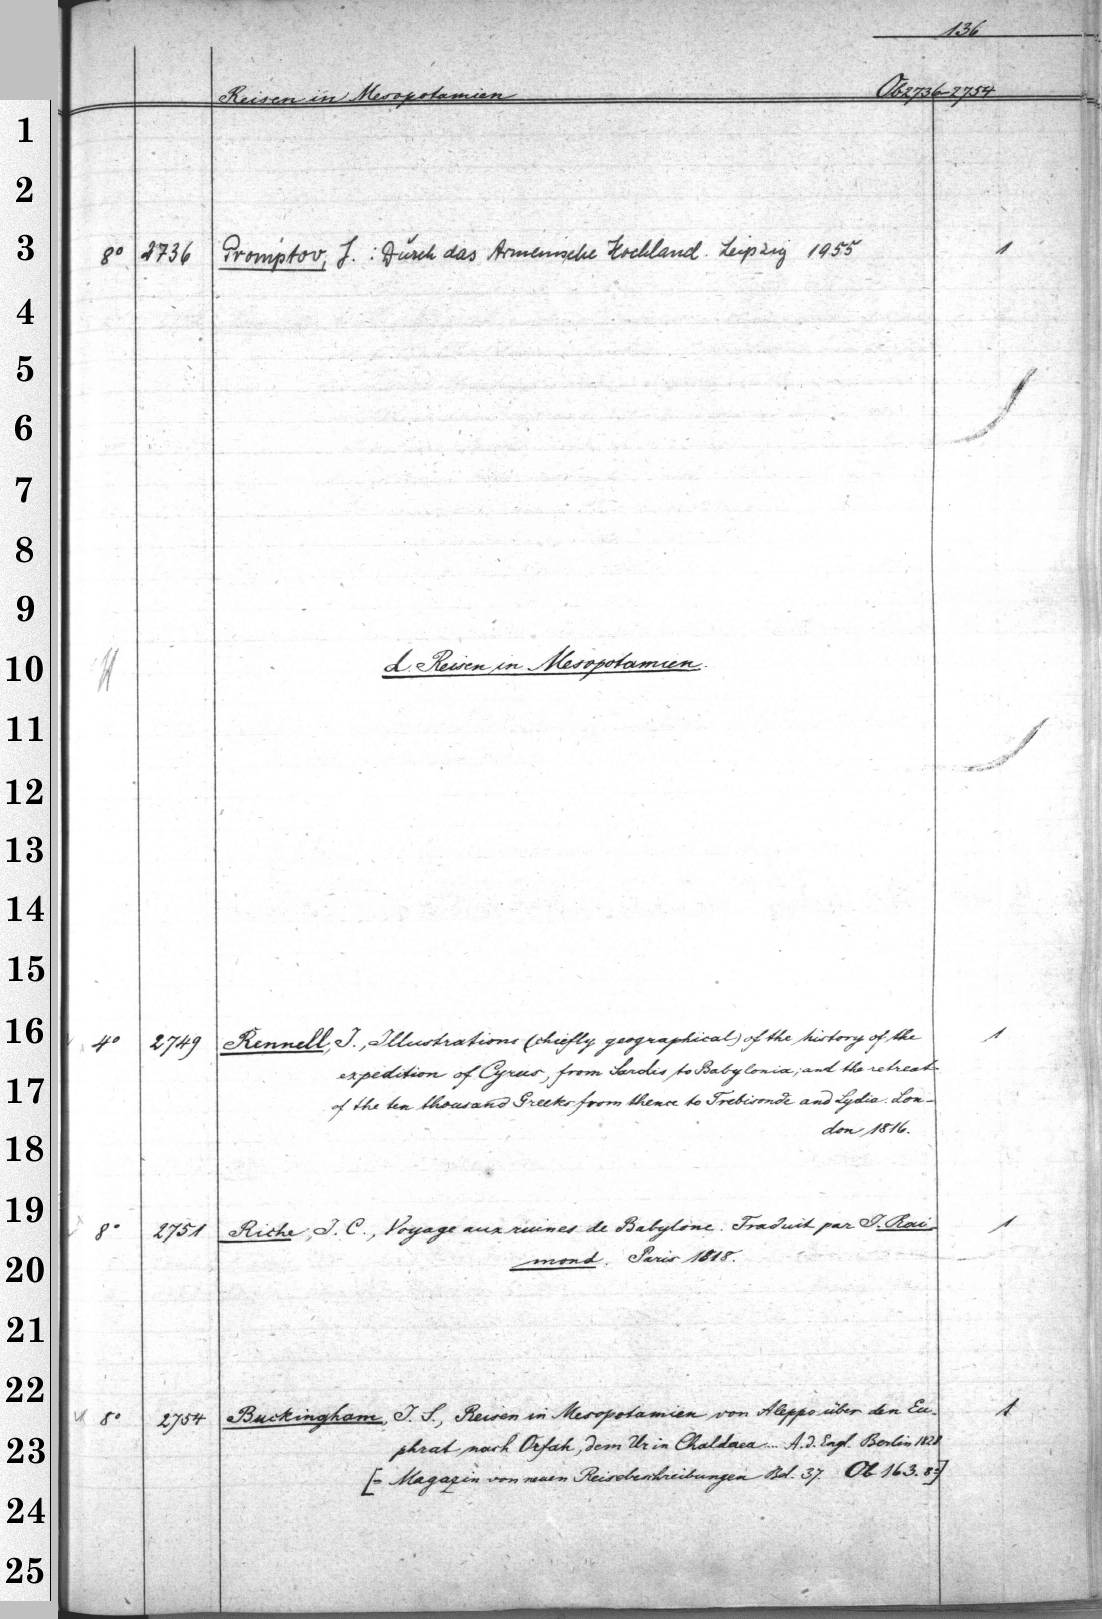 136
Reisen in Mesopotamien Ob2736-2754
1
2
3 8° 2736 Promptov, J.: Durch das Armenische Hochland. Leipzig 1955 1
4
5
6
7
8
9
10 d. Reisen in Mesopotamien.
11
12
13
14
15
16 4° 2749 Rennell, J., Illustrations (chiefly geographical) of the history of the 1
expedition of Cyrus, from Sardis to Babylonia; and the retreat
17 of the ten thousand Greeks from thence to Trebisonde and Lydia. Lon-
18 don 1816.
19 8° 2751 Riche, J. C., Voyage aux ruines de Babylone. Traduit par J. Rai- 1
20 mond. Paris 1818.
21
22 8° 2754 Buckingham, J. S., Reisen in Mesopotamien von Aleppo über den Eu- 1
23 phrat nach Orfah, dem Ur in Chaldaea ... A. d. Engl. Berlin 1828
[= Magazin von neuen Reisebeschreibungen Bd. 37. Ob 163. 8°]
24
25